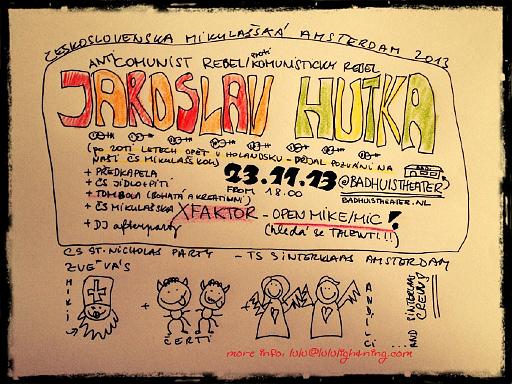 ČESKOSLOVENSKÁ MIKULÁŠSKÁ AMSTERDAM 2013
ANTICOMUNIST REBEL / PROTIKOMUNISTICKÝ REBEL
JAROSLAV HUTKA
(PO 20TI LETECH OPĚT V HOLANDSKU - PŘIJAL POZVÁNÍ NA
NAŠÍ ČS MIKULÁŠSKOU)
23.11.13 @BADHUISTHEATER
+ PŘEDKAPELA
FROM 18.00
BADHUISTHEATER.NL
+ ČS JÍDLO + PITÍ
+ TOMBOLA (BOHATÁ A KREATIVNÍ)
+ ČS MIKULÁŠSKÁ XFAKTOR - OPEN MIKE/MIC !
(hledá se TALENT!!!)
+ DJ afterparty
CS ST. NICHOLAS PARTY - TS SINTERKLAAS AMSTERDAM
ZVE VÁS
MIKI
+
ČERTI
+
ANDÍLCI
...AND SINTERKLAAS CREW!!
more info. lulu@lululightning.com